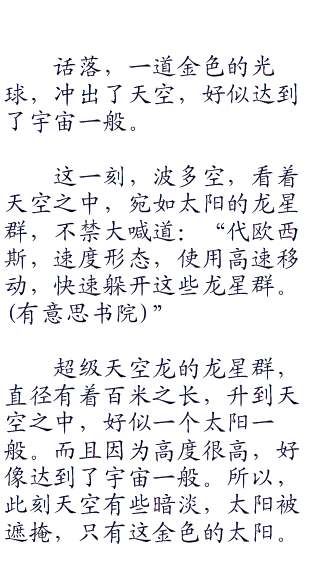 话落，一道金色的光
球，冲出了天空，好似达到
了宇宙一般。
这一刻，波多空，看着
天空之中，宛如太阳的龙星
群，不禁大喊道：“代欧西
斯，速度形态，使用高速移
动，快速躲开这些龙星群。
(有意思书院)”
超级天空龙的龙星群，
直径有着百米之长，升到天
空之中，好似一个太阳一
般。而且因为高度很高，好
像达到了宇宙一般。所以，
此刻天空有些暗淡，太阳被
遮掩，只有这金色的太阳。